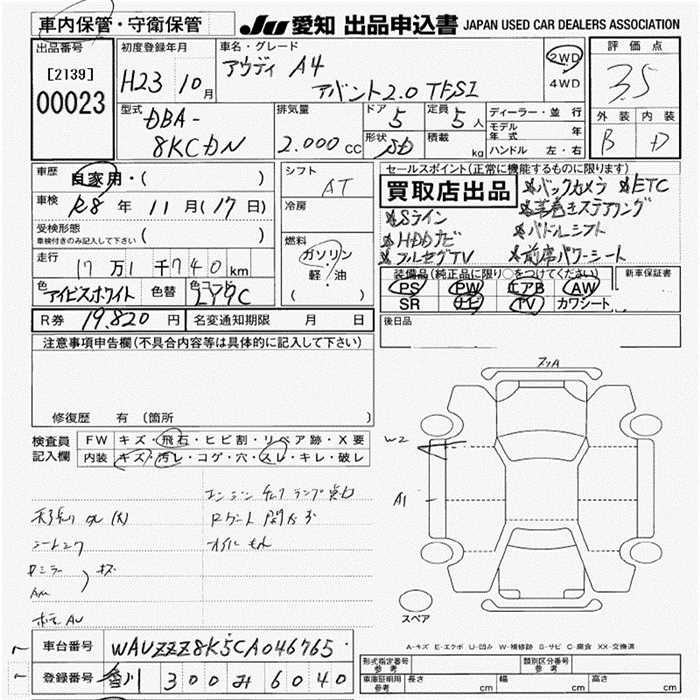 車内保管・守衛保管
JU 愛知 出品申込書 JAPAN USED CAR DEALERS ASSOCIATION
出品番号
[2139]
00023
初度登録年月
H23 10月
車名・グレード
アウディ A4
アバント2.0 TFSI
2WD
4WD
評価点
3.5
外装 内装
B D
型式
DBA-
8KCDN
排気量
2.000 cc
ドア 5
定員 5人
形状
積載 kg
ディーラー・並行
モデル年式 年
ハンドル 左・右
車歴
自家用・( )
車検
R8 年 11 月 (17 日)
受検形態
車検付きのみ記入して下さい ( )
走行
17万1千740 km
色
アイビスホワイト
色替
色コード
LY9C
シフト
AT
冷房
燃料
ガソリン
・
軽・油
( )
セールスポイント(正常に機能するものに限ります)
買取店出品
※バックカメラ ※ETC
※Sライン
※革巻きステアリング
※HDDナビ
※パドルシフト
※フルセグTV
※前席パワーシート
装備品(純正品に限り○をつけてください)
PS PW エアB AW
SR ナビ TV カワシート
新車保証書
後日品
R券 19,820 円
名変通知期限 月 日
注意事項申告欄(不具合内容等は具体的に記入して下さい)
修復歴 有 (箇所 )
検査員
記入欄
FW キズ・飛石・ヒビ割・リペア跡・X要
内装 キズ・汚レ・コゲ・穴・スレ・キレ・破レ
エンジン チェックランプ点灯
シートスク
オイルもれ
キズ
W2
A1
スペア
A-キズ E-エクボ U-凹み W-補修跡 S-サビ C-腐食 XX-交換済
車台番号
WAUZZZ8K5CA046765
登録番号
300 み 6040
形式指定番号
参考
類別区分番号
参考
車庫証明用
参考
長さ cm
幅 cm
高さ cm